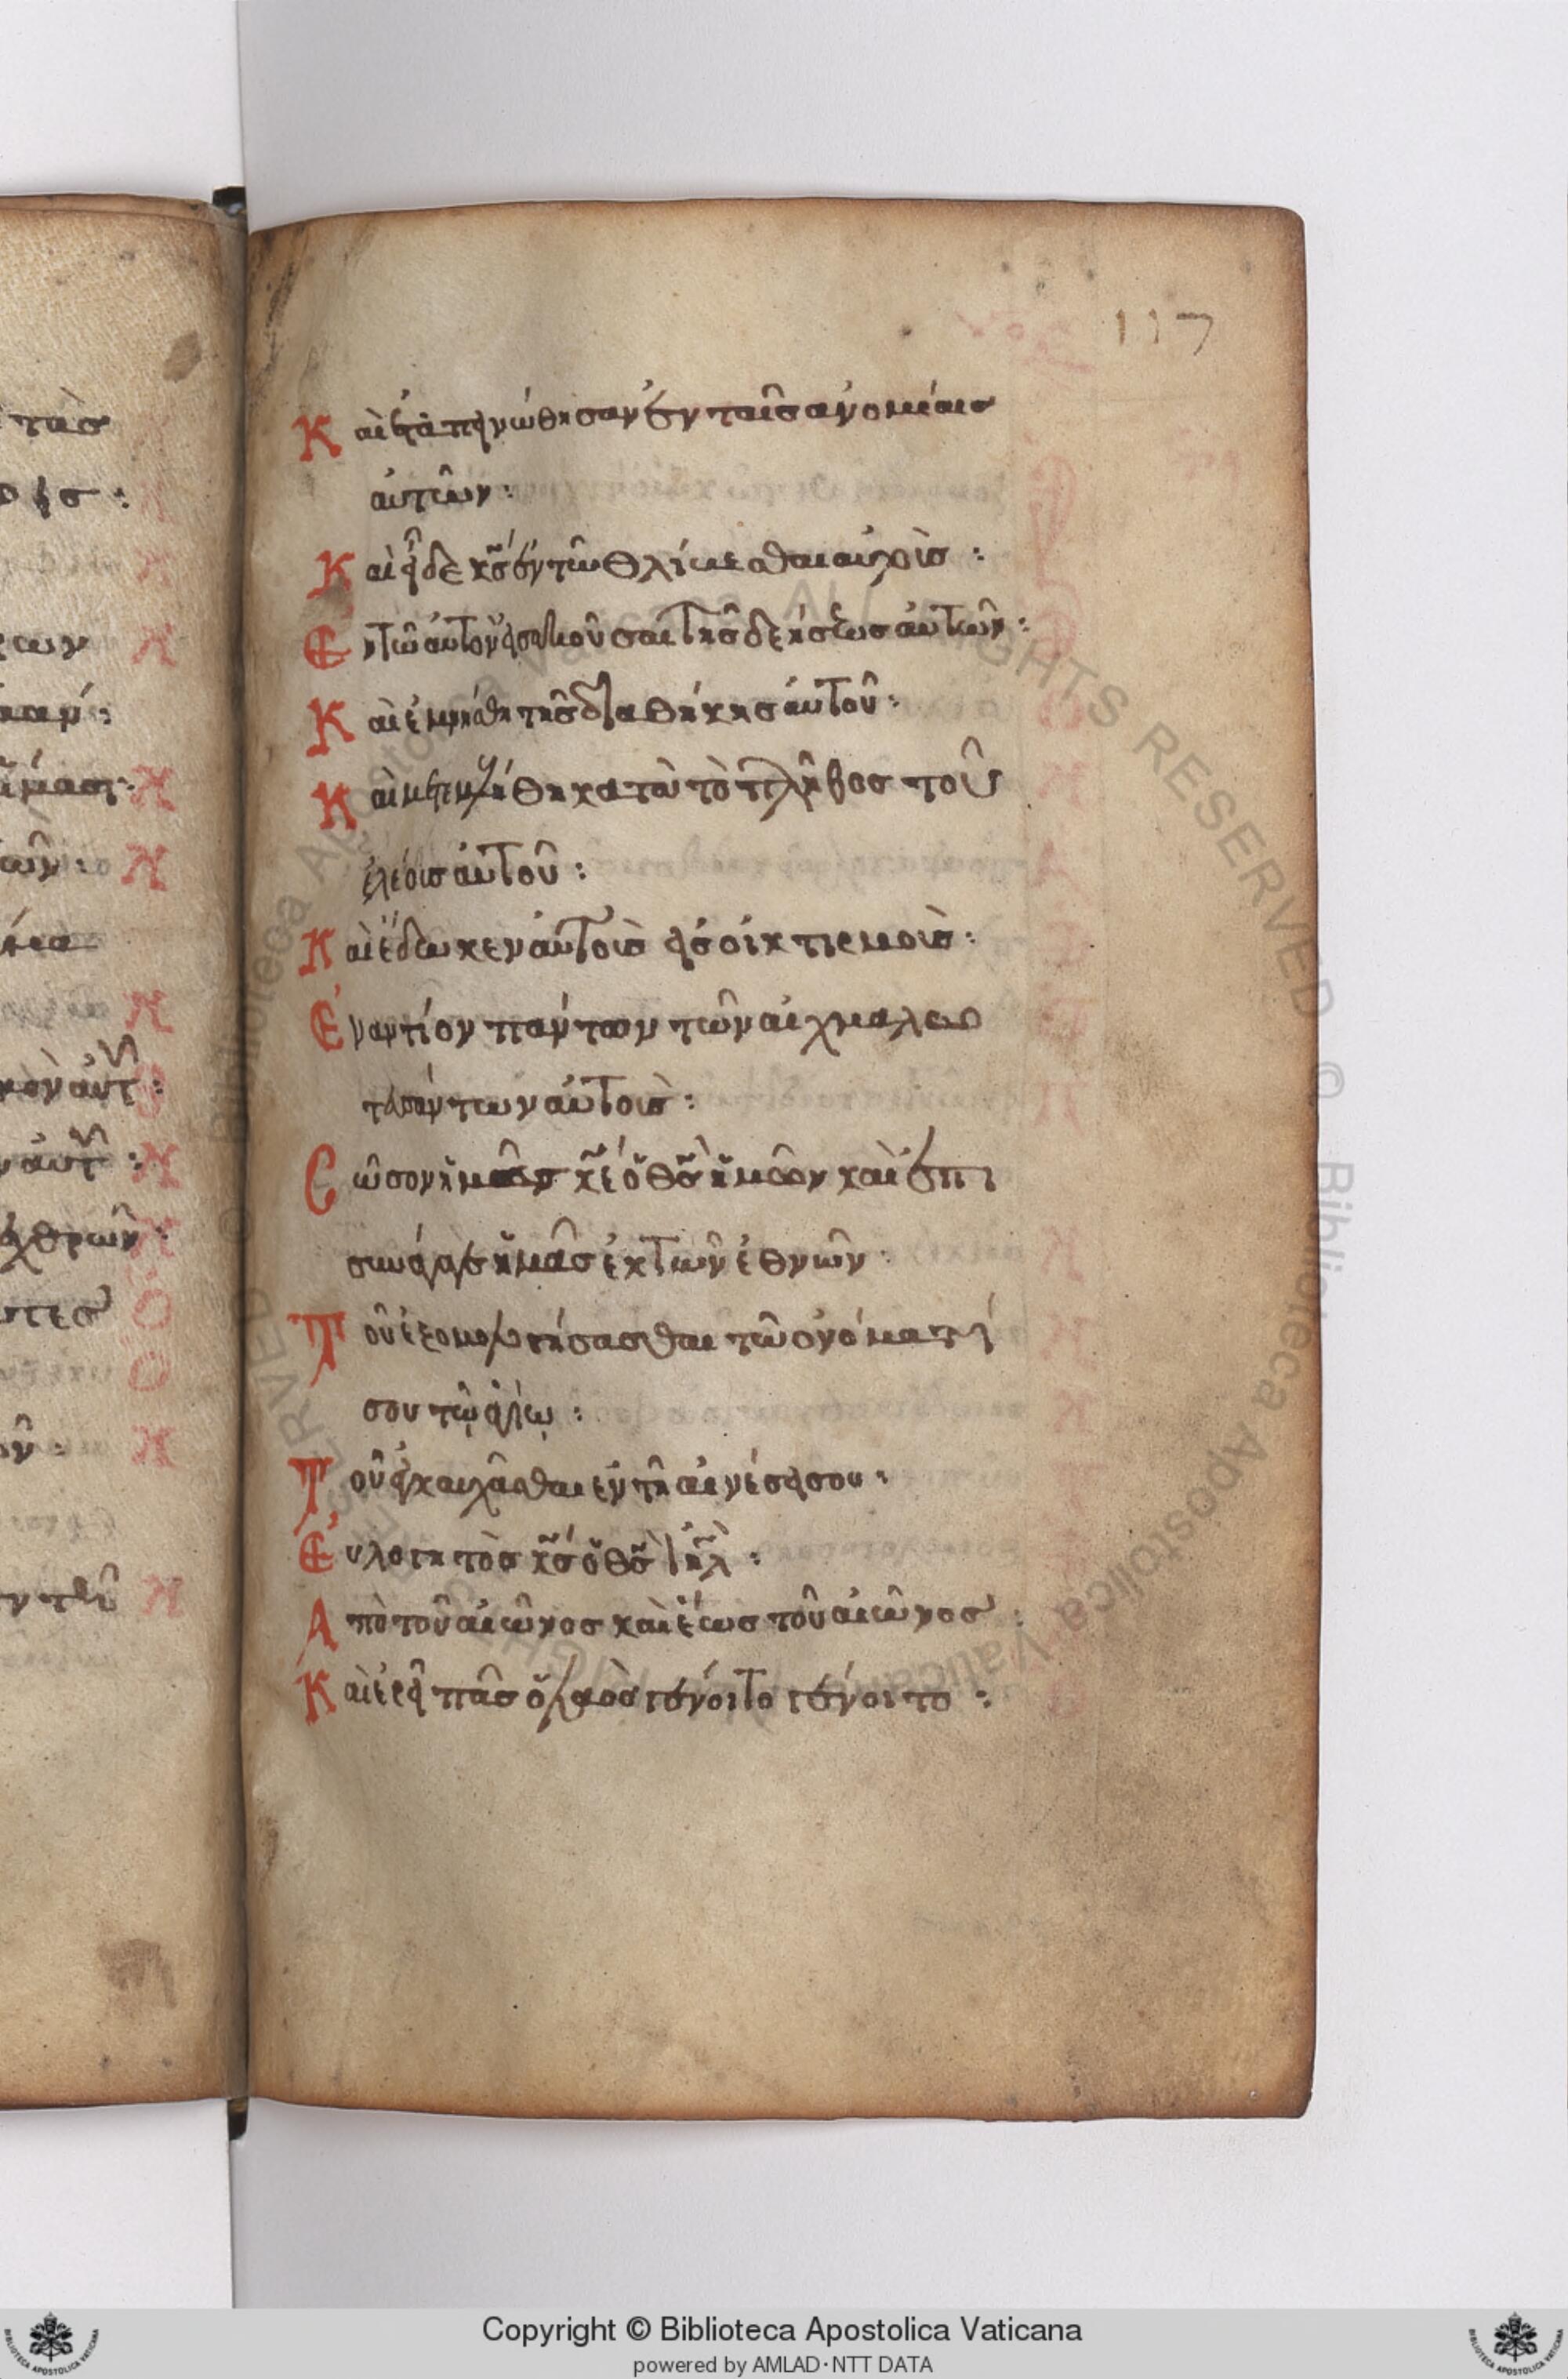 117
Καὶ ἐταπεινώθησαν ἐν ταῖς ἀνομίαις
αὐτῶν:
Καὶ εἶδε κ̅ς̅ ἐν τῶ θλίβεσθαι αὐτοὺς:
Ἐν τῶ αὐτὸν εἰσακοῦσαι τῆς δεήσεως αὐτῶν:
Καὶ ἐμνήσθη τῆς διαθήκης αὐτοῦ:
Καὶ μετεμελήθη κατὰ τὸ πλῆθος τοῦ
ἐλέους αὐτοῦ:
Καὶ ἔδωκεν αὐτοὺς εἰς οἰκτιρμοὺς:
Ἐναντίον πάντων τῶν αἰχμαλω
τευσάντων αὐτοὺς:
Σῶσον ἡμᾶς κ̅ε̅ ὁ θ̅ς̅ ἡμῶν καὶ ἐπι
συνάγαγε ἡμᾶς ἐκ τῶν ἐθνῶν:
Τοῦ ἐξομολογήσασθαι τῶ ὀνόματί
σου τῷ ἁγίῳ:
Τοῦ ἐγκαυχᾶσθαι ἐν τῆ αἰνέσει σου:
Εὐλογητὸς κ̅ς̅ ὁ θ̅ς̅ ι̅η̅λ̅:
Ἀπὸ τοῦ αἰῶνος καὶ ἕως τοῦ αἰῶνος:
Καὶ ἐρεῖ πᾶς ὁ λαὸς γένοιτο γένοιτο:
Copyright © Biblioteca Apostolica Vaticana
powered by AMLAD·NTT DATA